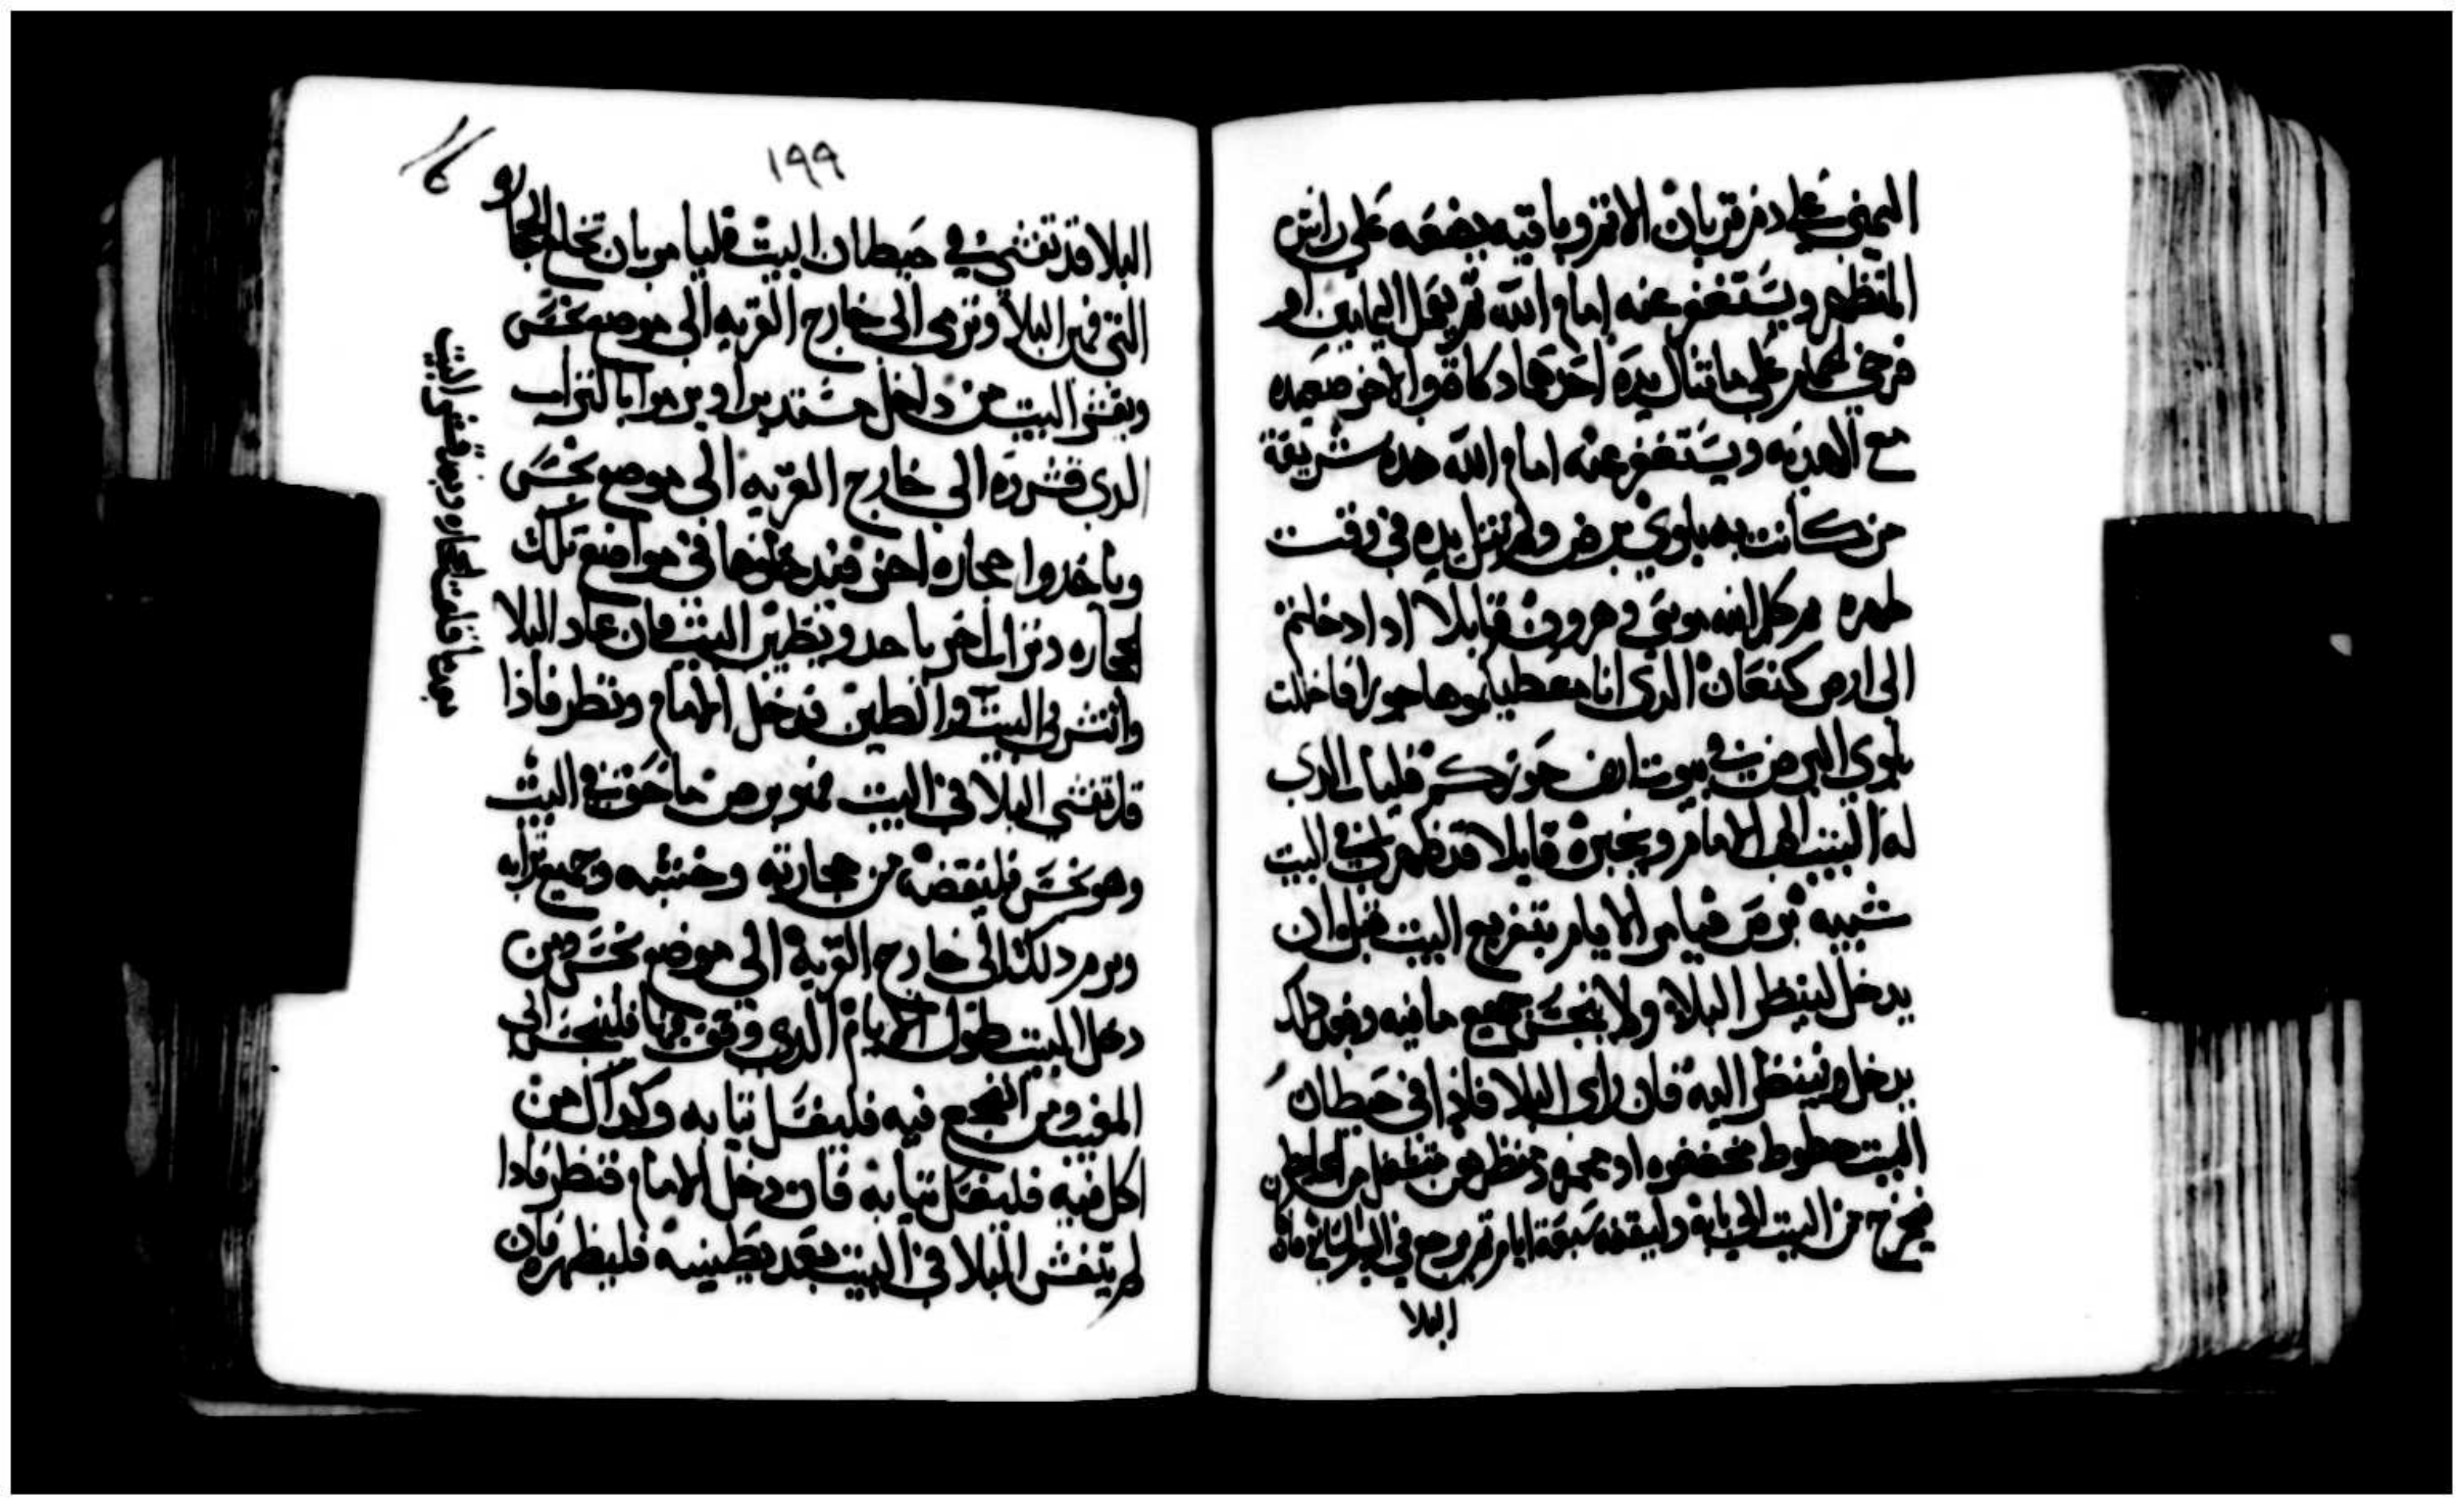 اليمني على دم قربان الاثم وباقيه يضعه على راس
المتطهر ويستغفر عنه امام الله ثم يعمل اليمامين او
فرخي الحمام على ما تنال يده احدهما دكاة والاخر صعيده
مع الاهديه ويستغفر عنه امام الله هده شريعة
من كانت به بلوي برص ولم تنل يده في وقت
طهره ثم كلم الله موسى وهرون قايلا ادا دخلتم
الى ارض كنعان الدي انا معطيكموها حوزا فاحللت
بلوي البرص في بيوت ارض حوزكم فليات الدي
له البيت الى الامام ويخبره قايلا قد ظهر لي في البيت
شبيه برص فيامر الامام بتفريع البيت قبل ان
يدخل لينظر البلا ولا ينجس جميع ما فيه وبعد دلك
يدخل وينظر اليه فان راى البلا فاذا في حيطان
البيت خطوط مخضره او محمره ومنظرهن متسفل من الحايط
فيخرج من البيت الى بابه وليقفه سبعة ايام ثم يرجع في اليوم السابع فان
البلا
١٩٩
البلا قد تفشى في حيطان البيت فليامر بان تخلع الحجاره
التي فيهن البلا وترمى الى خارج القريه الى موضع نجس
ويقشر البيت من داخل مستديرا ويرموا بالتراب
الدي قشروه الى خارج القريه الى موضع نجس
وياخدوا حجاره اخر فيدخلونها في مواضع تلك
الحجاره وتراب اخر ياخد ويطين البيت فان عاد البلا
وانتشر في البيت والطين فدخل الامام ونظر فاذا
قد تفشى البلا في البيت فهو برص ماحق في البيت
وهو نجس فلينقضه من حجارته وخشبه وجميع ترابه
ويرم دلك الى خارج القريه الى موضع نجس ومن
دخل البيت طول الايام الدي وقف فيها فلينجس الى
المغيب ومن انضجع فيه فليغسل ثيابه وكدا كل من
اكل فيه فليغسل ثيابه فان دخل الامام فنظر فاذا
لم يتفش البلا في البيت بعد تطيينه فليطهره فان